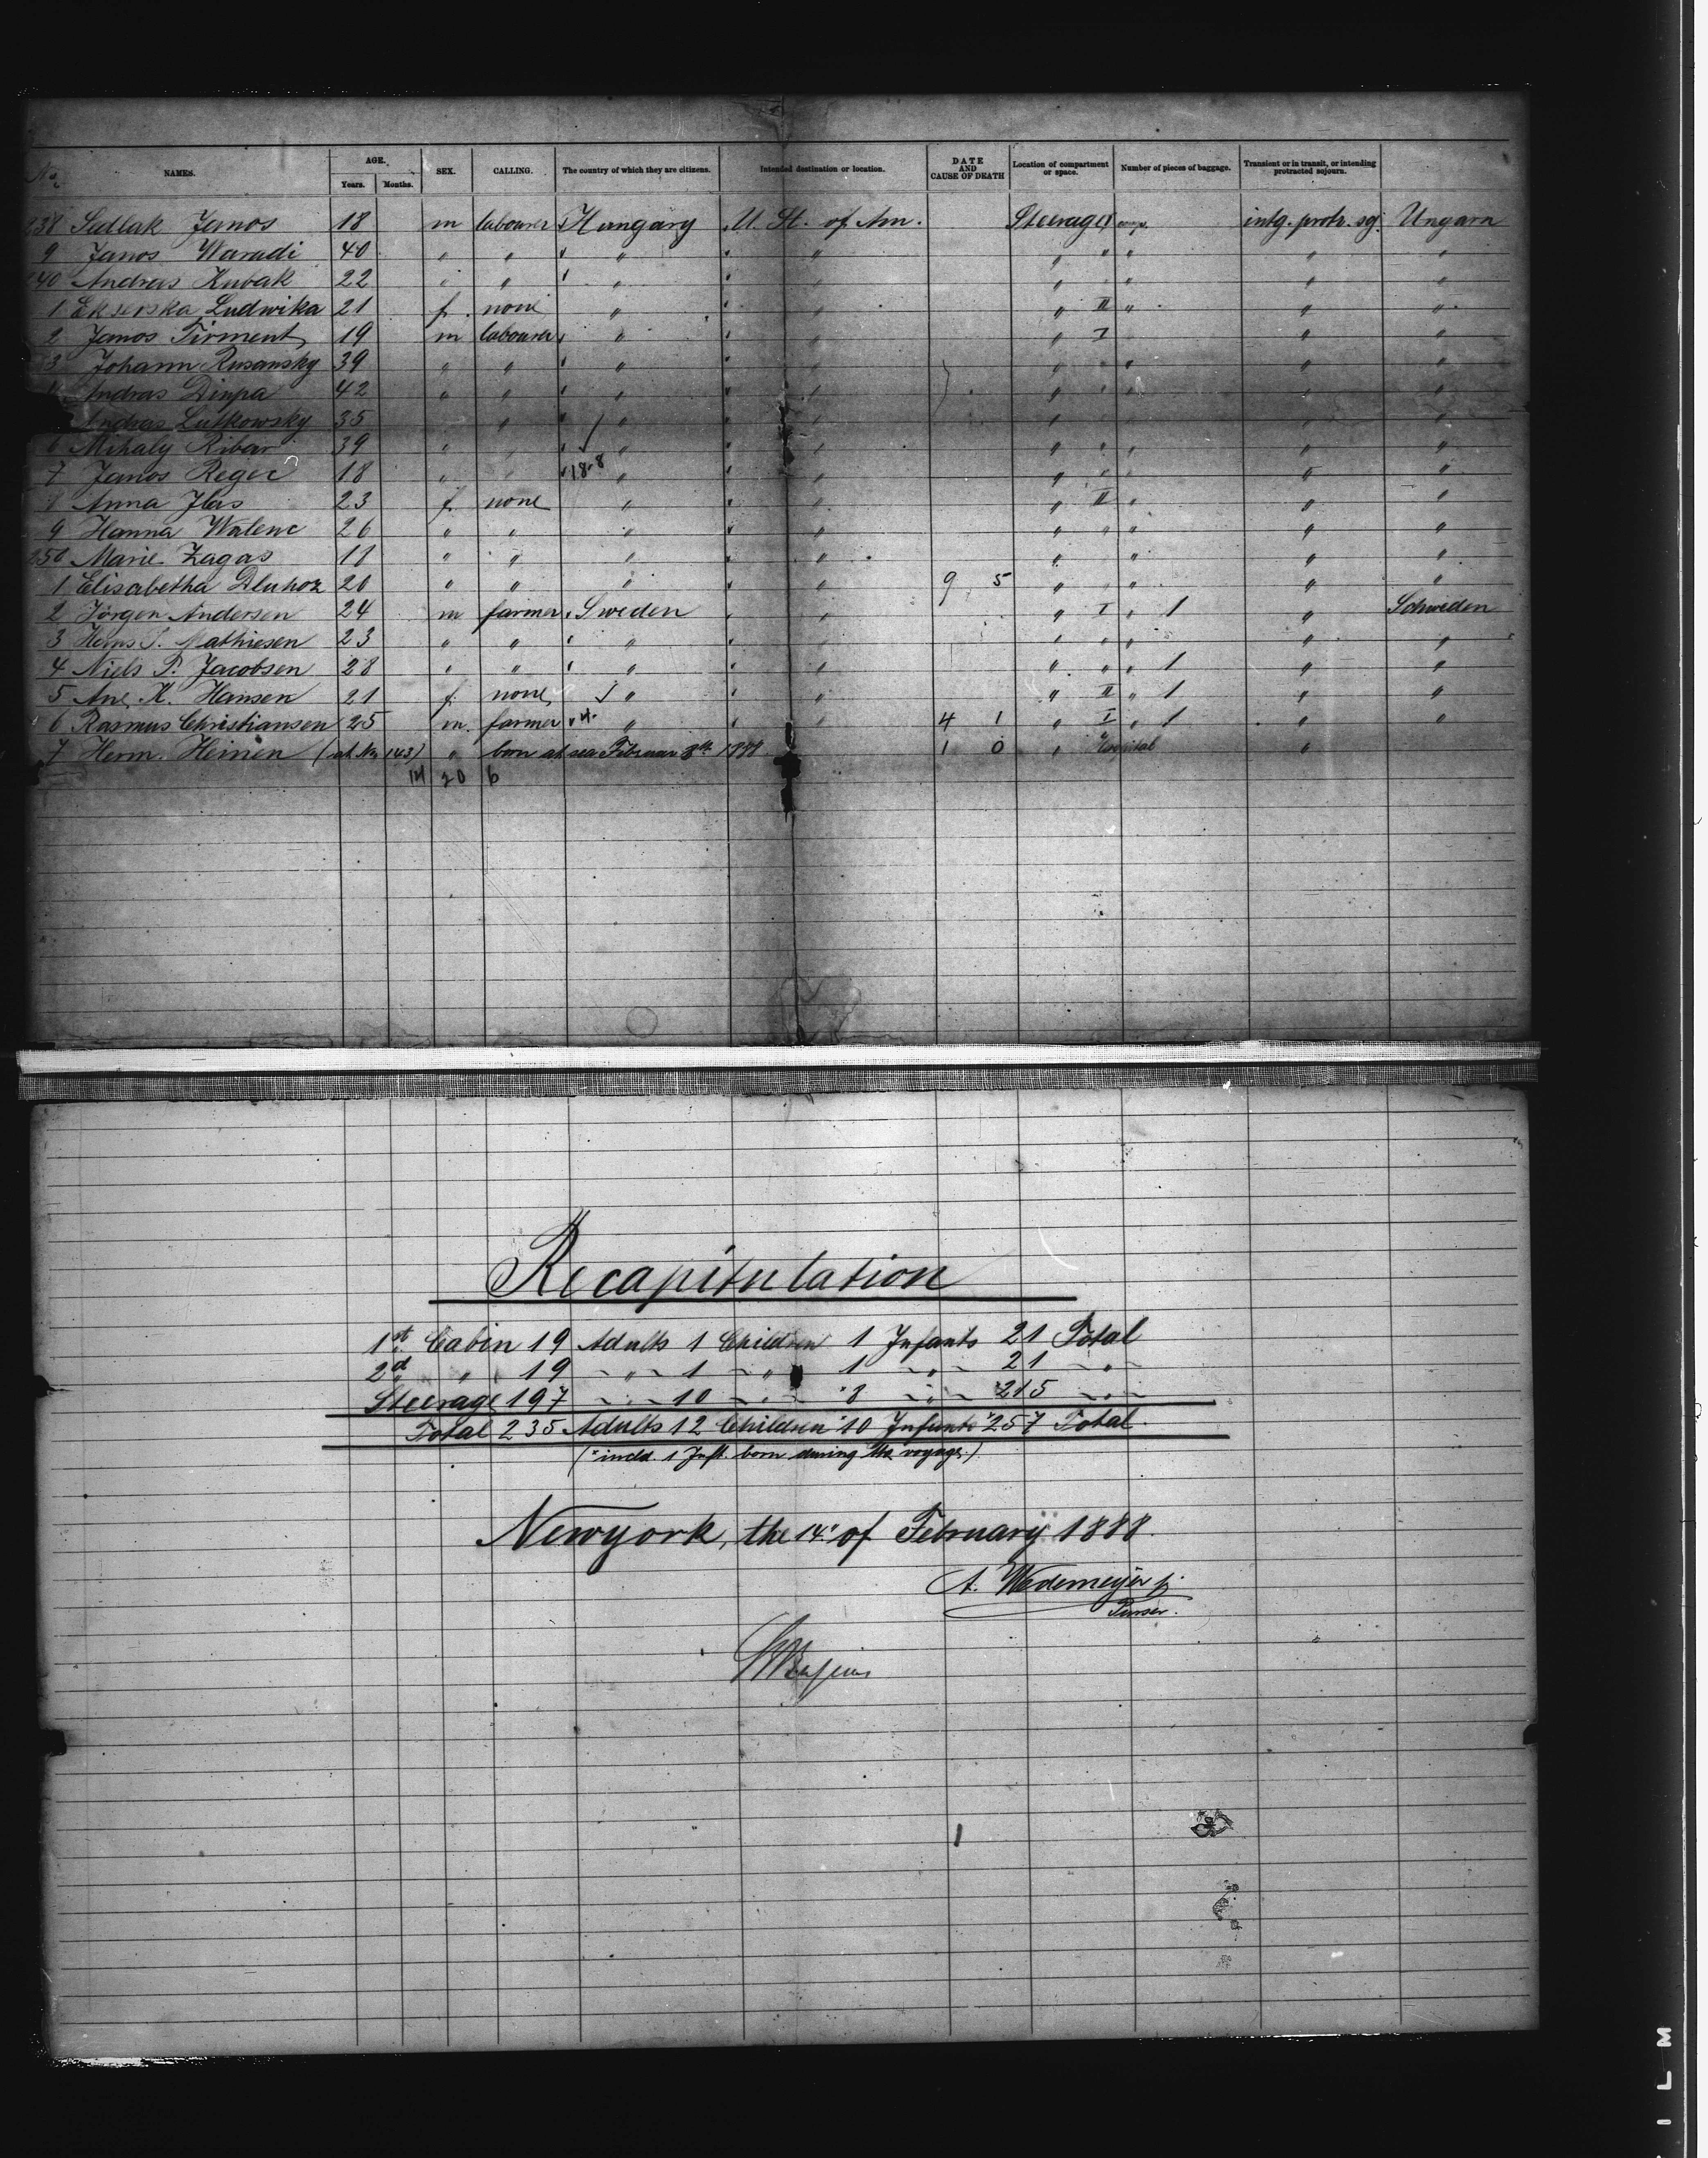 No. NAMES. AGE. Years. Months. SEX. CALLING. The country of which they are citizens. Intended destination or location. DATE AND CAUSE OF DEATH Location of compartment or space. Number of pieces of baggage. Transient or in transit, or intending protracted sojourn.
238 Sedlak Janos 18 m labourer Hungary U. St. of Am. Steerage I intg. protr. soj. Ungarn
9 Janos Waradi 40 " " " " " " " " "
240 Andras Kubak 22 " " " " " " " " "
1 Ekserska Ludwika 21 f. none " " " II " " "
2 Janos Tirment 19 m labourer " " " I " "
3 Johann Rusansky 39 " " " " " " " " "
4 Andras Dinpa 42 " " " " " " " " "
Andras Lutkowsky 35 " " " " " " "
6 Mihaly Ribar 39 " " " " " " " " "
7 Janos Reger 18 " " 18.8 " " " " " "
Anna Ilas 23 f. none " " " II " " "
9 Hanna Walenc 26 " " " " " " " " "
250 Marie Zagas 18 " " " " " " " "
1 Elisabetha Dluhoz 20 " " " " 9 5 " " " "
2 Jörgen Andersen 24 m farmer Sweden " " I " 1 " Schweden
3 P. Mathiesen 23 " " " " " " " " "
4 Niels P. Jacobsen 28 " " " " " " " 1 " "
5 Ane K. Hansen 21 f. none " " " II " 1 " "
6 Rasmus Christiansen 25 m. farmer 4. " " 4 1 " I " 1 " "
7 Herm. Heinen (at No 143) " born at sea Februar 8th 1888 1 0 " Hospital "
14 20 6
Recapitulation
1st. Cabin 19 Adults 1 Children 1 Infants 21 Total
2d. " 19 " 1 " 1 " 21 "
Steerage 197 " 10 " *8 " *215 "
Total 235 Adults 12 Children *10 Infants *257 Total.
(*incld. 1 Inft. born during the voyage.)
Newyork, the 14. of February 1888.
A. Wedemeyer jr.
Purser.
1
ILM